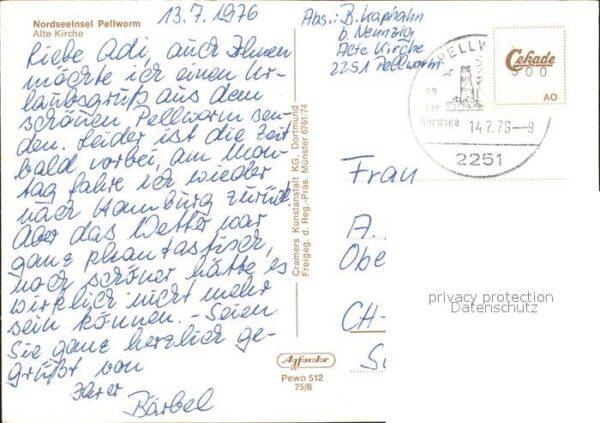 Nordseeinsel Pellworm
Alte Kirche
13.7.1976
Liebe Adi, auch Ihnen
möchte ich einen Ur-
laubsgruß aus dem
schönen Pellworm sen-
den. Leider ist die Zeit
bald vorbei, am Mon-
tag fahre ich wieder
nach Hamburg zurück
Aber das Wetter war
ganz phantastisch,
noch schöner hätte es
wirklich nicht mehr
sein können. - Seien
Sie ganz herzlich ge-
grüßt von
Ihrer
Bärbel
Cramers Kunstanstalt KG, Dortmund
Freigeg. d. Reg.-Präs. Münster 6761/74
Agfacolor
Pewo 512
75/6
Abs.: B. Kaphahn
b. Nennzig
Alte Kirche
2251 Pellworm
PELLW
an
der
Nordsee
14.7.76-9
2251
Cekade
500
AO
Frau
A.
Obe
CH-
privacy protection
Datenschutz